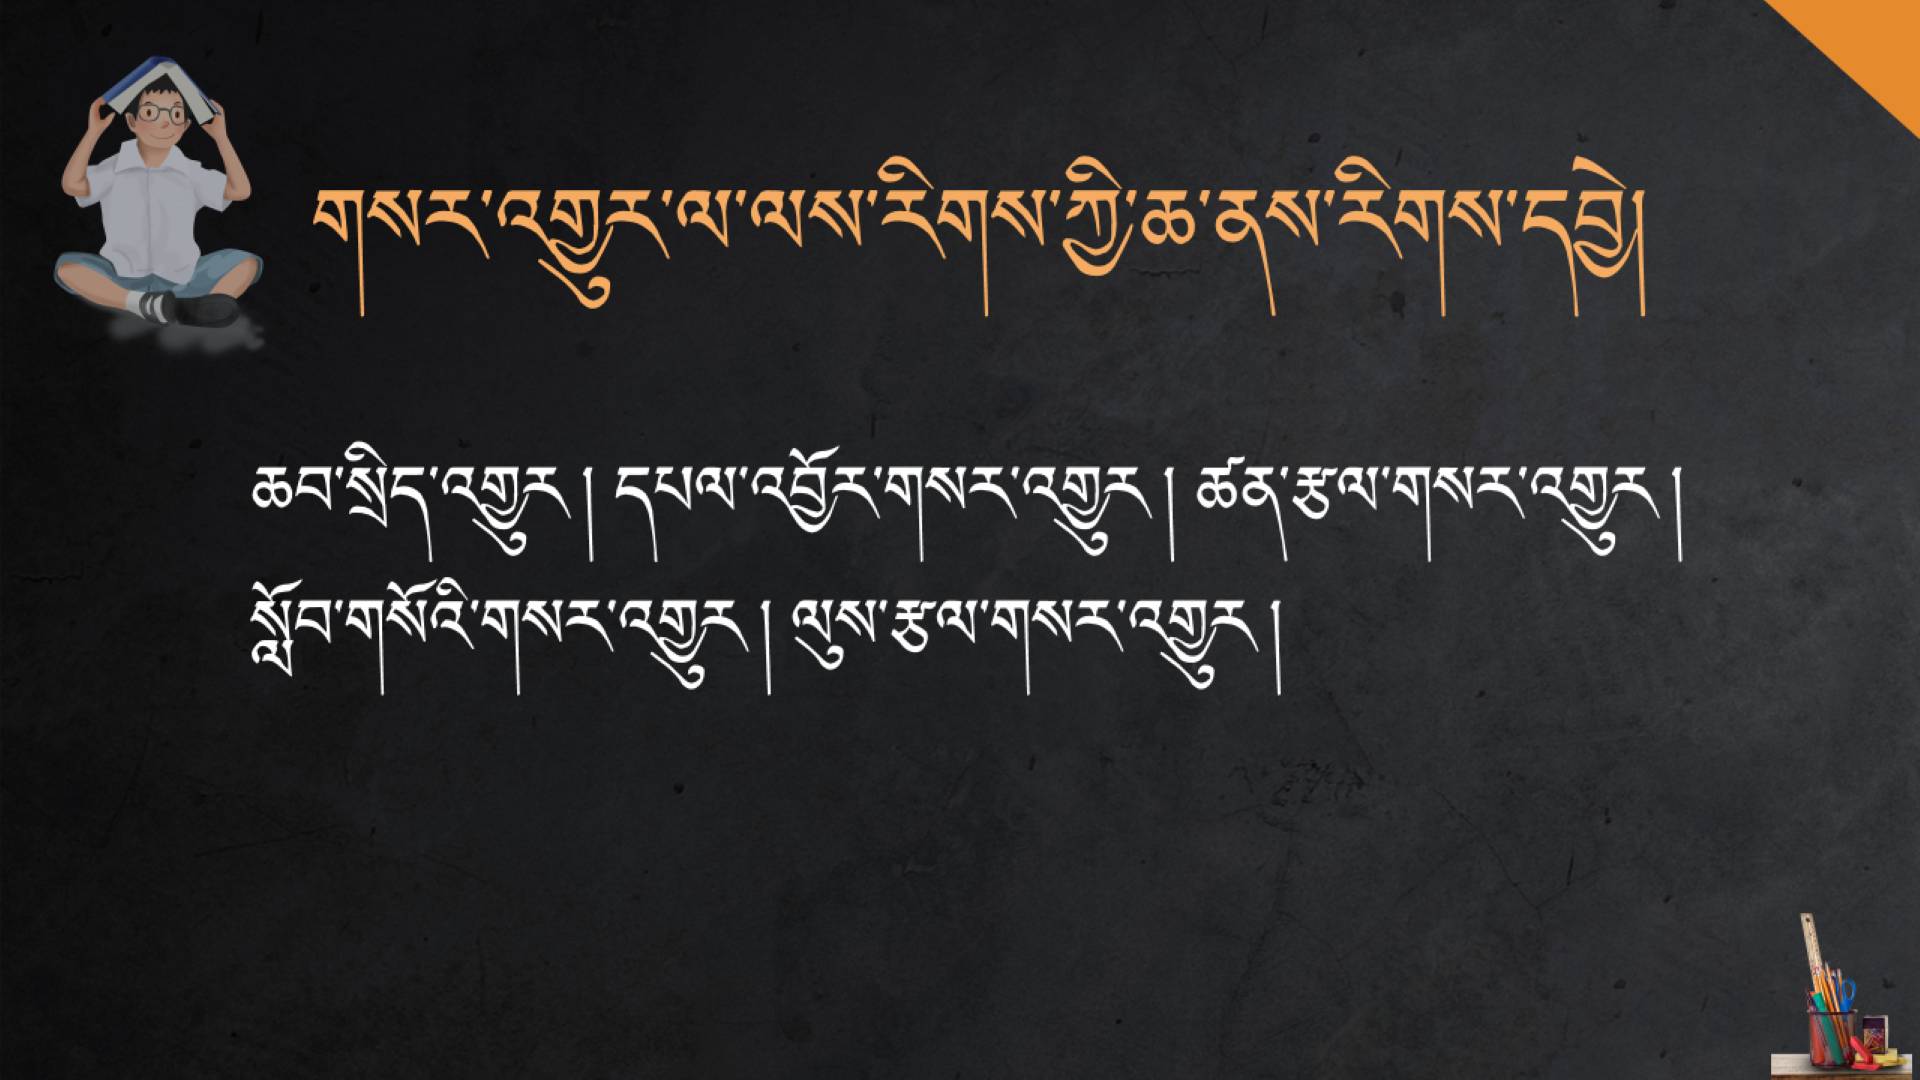 གསར་འགྱུར་ལ་ལས་རིགས་ཀྱི་ཆ་ནས་རིགས་དབྱེ།
ཆབ་སྲིད་འགྱུར། དཔལ་འབྱོར་གསར་འགྱུར། ཚན་རྩལ་གསར་འགྱུར།
སློབ་གསོའི་གསར་འགྱུར། ལུས་རྩལ་གསར་འགྱུར།